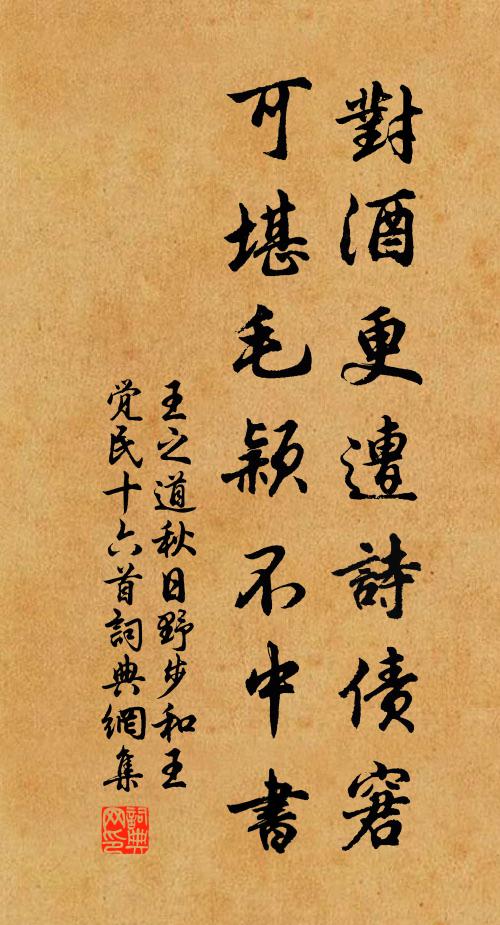 對酒更遭詩債窘
可堪毛颖不中書
王之道秋日野步和王
覚民十六首詞典網集
詞典网印